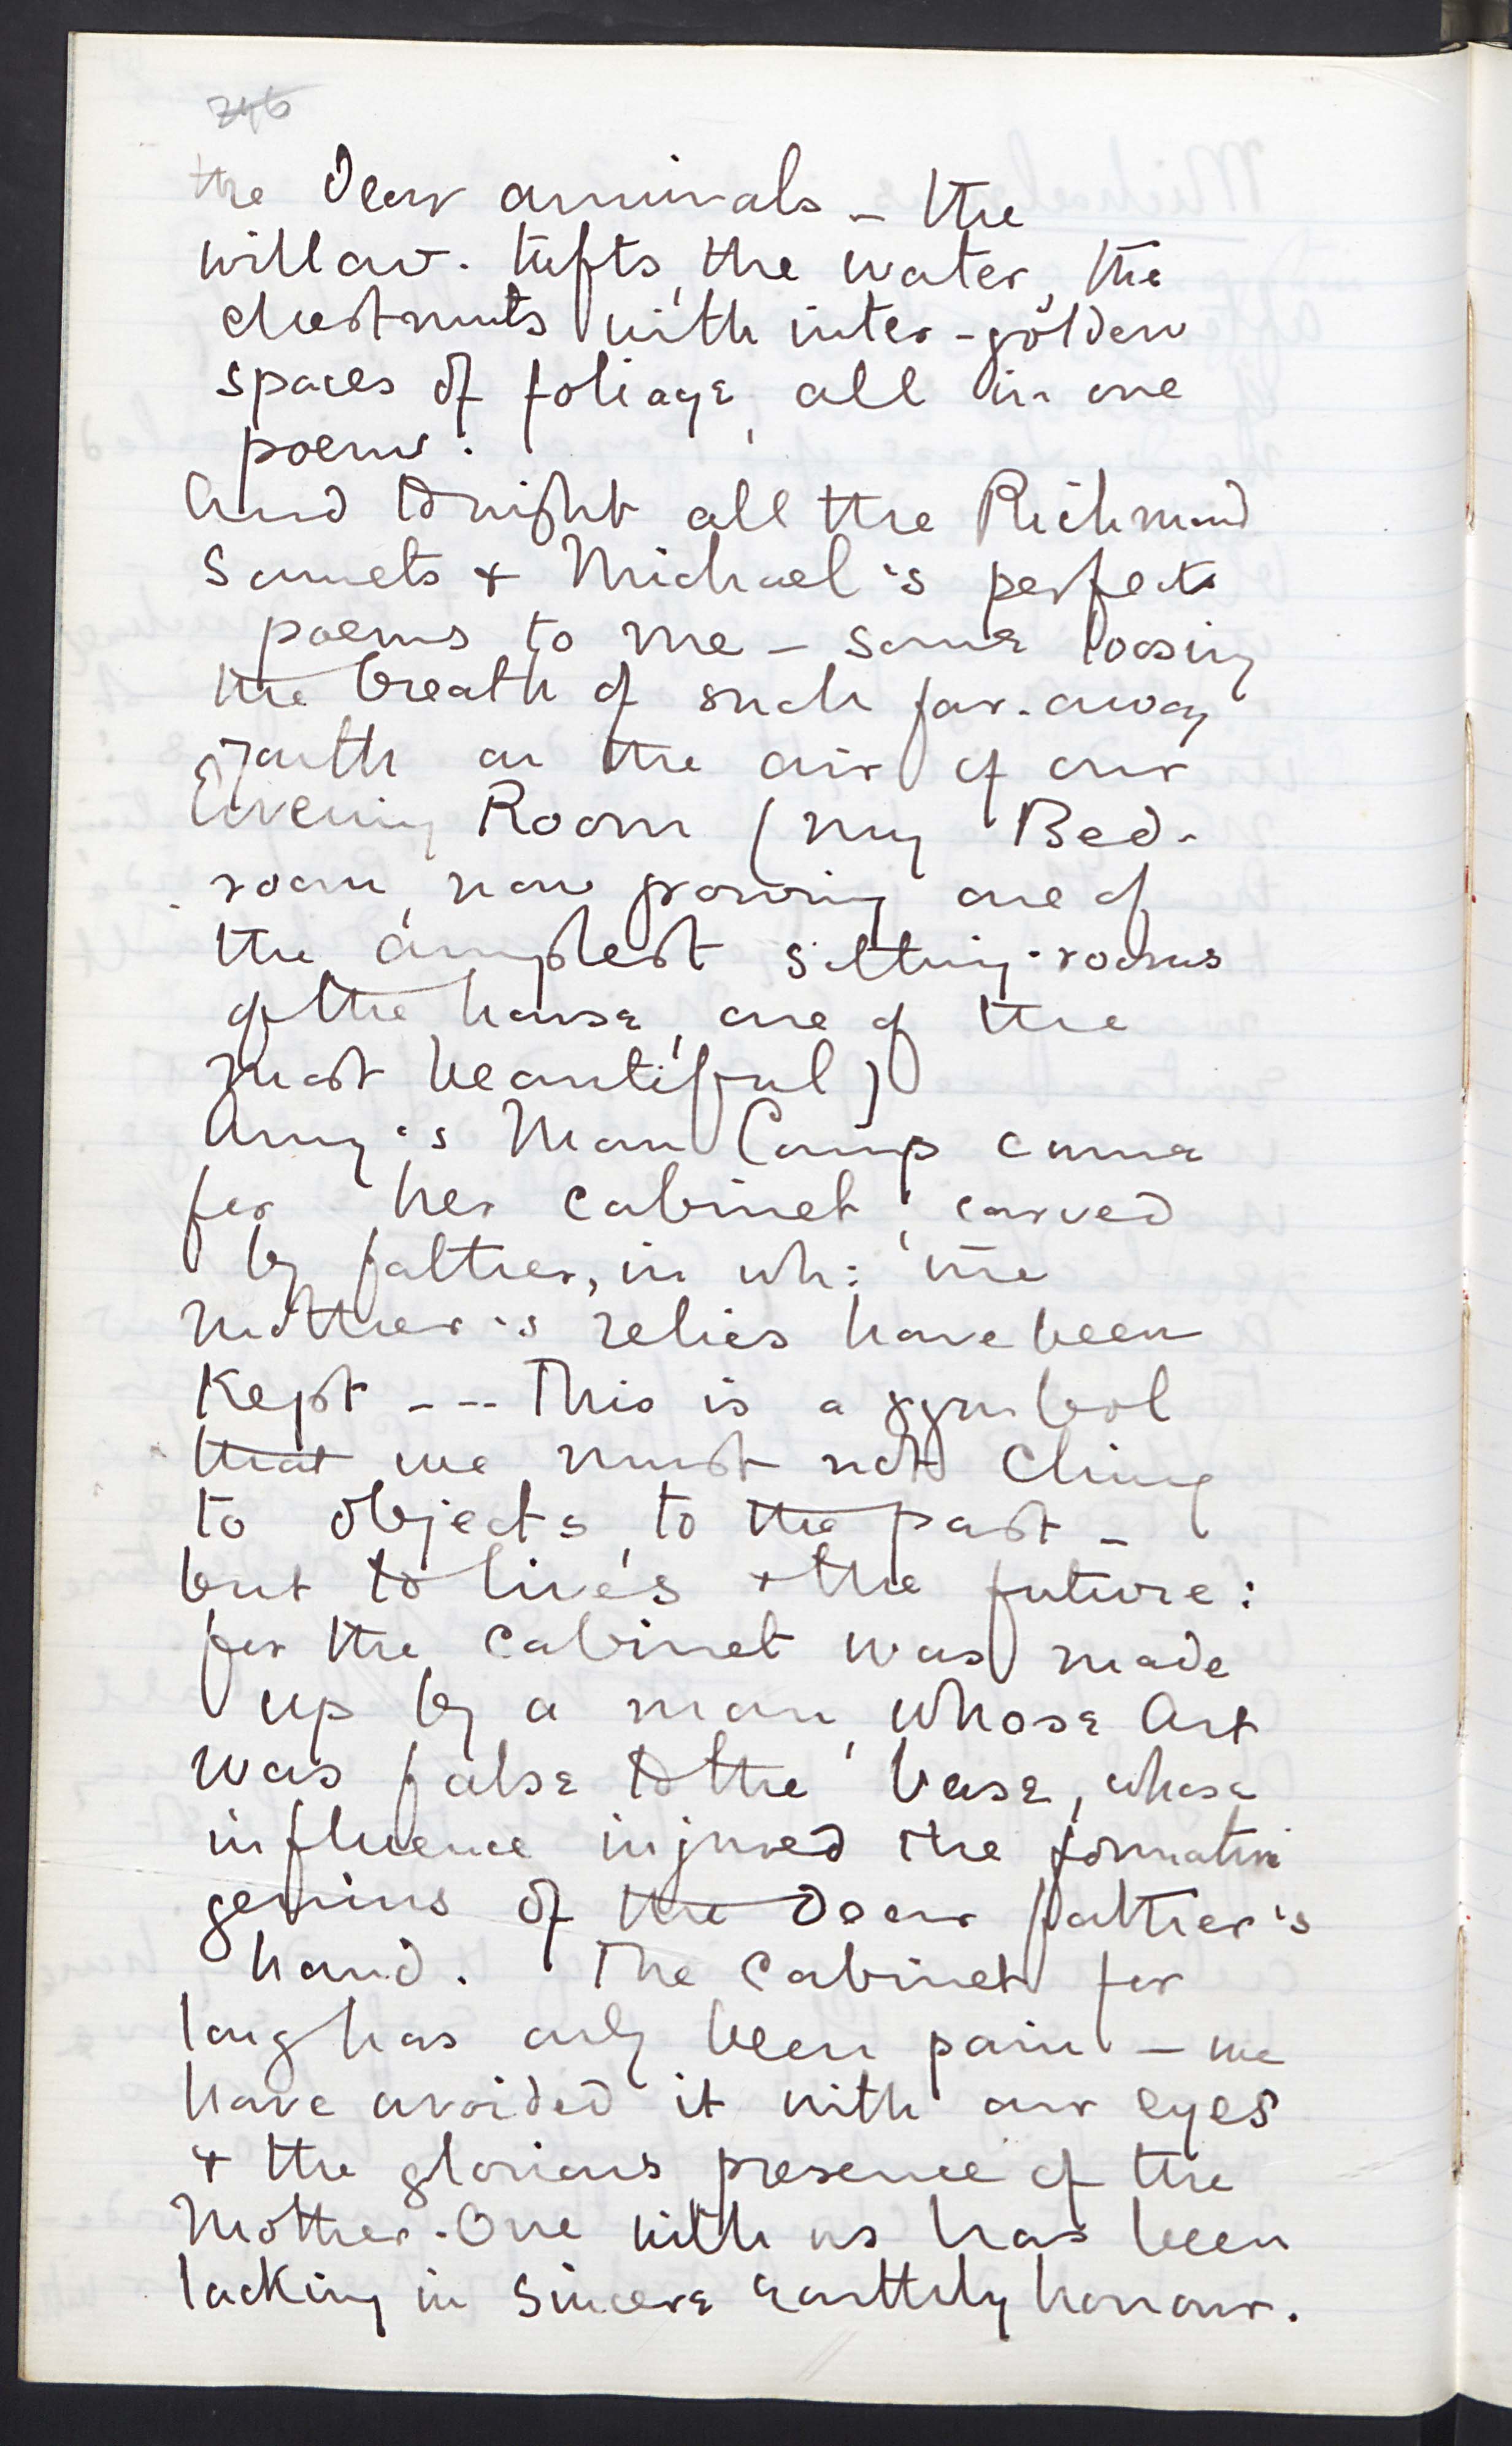 246
the dear arrivals – the
willow-tufts, the water, the
chestnuts with inter-golden
spaces of foliage, all in one
poem.
And tonight all the Richmond
Sonnets + Michael's perfect
poems to me – some loosing
the breath of such far-away
youth on the air of our
Evening Room (my Bed-
room, now growing one of
the amplest sitting-rooms
of the house, one of the
most beautiful)
Amy's Man Camp came
for her cabinet, carved
by father, in wh: the
mother's relics have been
Kept --- This is a symbol
that we must not cling
to objects, to the past –
but to lives + the future:
for the cabinet was made
up by a man, whose Art
was false to the base, whose
influence injured the formative
genius of the dear father's
hand. The Cabinet for
long has only been pain – we
have avoided it with our eyes
+ the glorious presence of the
Mother-One with us has been
lacking in sincere earthly honour.